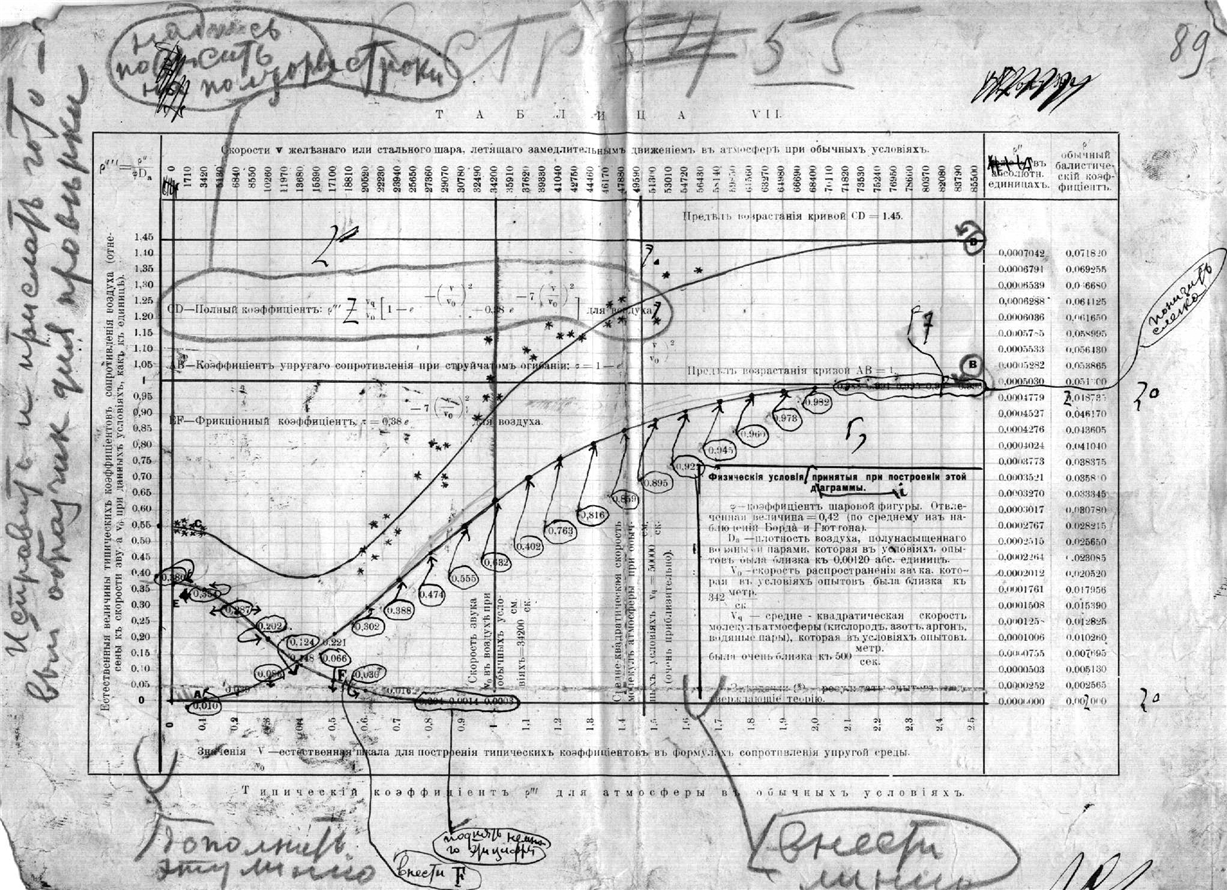 89
надпись
понизить
на полторы строки
СТР 55
Исправить и прислать гото-
вый образчик для провѣрки
ТАБЛИЦА VII.
Скорости v желѣзнаго или стального шара, летящаго замедлительнымъ движеніемъ въ атмосферѣ при обычныхъ условіяхъ.
0 1710 3420 5130 6840 8550 10260 11970 13680 15390 17100 18810 20520 22230 23940 25650 27360 29070 30780 32490 34200 35910 37620 39330 41040 42750 44460 46170 47880 49590 51300 53010 54720 56430 58140 59850 61560 63270 64980 66690 68400 70110 71820 73530 75240 76950 78660 80370 82080 83790 85500
въ
абсолютн.
единицахъ.
обычный
балистиче-
скій коэф-
фиціентъ.
Предѣлъ возрастанія кривой CD = 1.45.
Естественныя величины типическихъ коэффиціентовъ сопротивленія воздуха (отне-
сены къ скорости звука v₀ при данныхъ условіяхъ, какъ къ единицѣ).
1.45
1.10
1.35
1.30
1.25
1.20
1.15
1.10
1.05
1
0,95
0,90
0,85
0,80
0,75
0,70
0,65
0,60
0,55
0,50
0,45
0,40
0,35
0,30
0,25
0,20
0,15
0,10
0,05
0
CD—Полный коэффиціентъ:
для воздуха
AB—Коэффиціентъ упругаго сопротивленія при струйчатомъ огибаніи: z = 1 — e
Предѣлъ возрастанія кривой AB = 1.
EF—Фрикціонный коэффиціентъ, z = 0,38 e
для воздуха.
понизить
слегка
0,982
0,973
0,960
0,945
0,895
0,859
0,816
0,763
0,402
0,632
0,555
0,474
0,388
0,302
0.221
0,066
0,124
0,202
0,287
0,039
0,016
0,010
Скорость звука
v₀ въ воздухѣ при
обычныхъ усло-
віяхъ=34200 см.
ск.
Средне-квадратическая скорость
молекулъ атмосферы при обыч-
ныхъ условіяхъ vq = 50000 см.
ск.
(очень приблизительно).
Физическія условія, принятыя при построеніи этой
діаграммы.
φ — коэффиціентъ шаровой фигуры. Отвле-
ченная величина=0,42 (по среднему изъ на-
блюденій Борда и Гюттона).
Dₐ —плотность воздуха, полунасыщеннаго
водяными парами, которая въ условіяхъ опы-
товъ была близка къ 0,00120 абс. единицъ.
V₀—скорость распространенія звука, кото-
рая въ условіяхъ опытовъ была близка къ
342 метр.
ск.
Vq — средне-квадратическая скорость
молекулъ атмосферы (кислородъ, азотъ, аргонъ,
водяные пары), которая въ условіяхъ опытовъ
была очень близка къ 500 метр.
сек.
0,0007042 0,071820
0,0006791 0,069255
0,0006539
0,0006288 0,064125
0,0006036 0,061650
0,058995
0,0005533 0,056430
0,0005282 0,053865
0,0005030
0,0004779
0,0004527 0,046170
0,0004276 0,043605
0,0004024 0,041040
0,0003773 0,038375
0,0003521
0,0003270 0,033345
0,0003017 0,030780
0,0002767 0,028215
0,0002515 0,025650
0,0002264 0,023085
0,0002012 0,020520
0,0001761 0,017956
0,0001508 0,015390
0,0001258 0,012825
0,0001006 0,010260
0,0000755 0,007695
0,0000503 0,005130
0,0000252 0,002565
0,0000000
0 0,1 0,2 0,3 0,4 0,5 0,6 0,7 0,8 0,9 1 1,1 1,2 1,3 1,4 1,5 1,6 1,7 1,8 1,9 2,0 2,1 2,2 2,3 2,4 2,5
Значенія V/v₀ —естественная шкала для построенія типическихъ коэффиціентовъ въ формулахъ сопротивленія упругой среды.
Типическій коэффиціентъ p''' для атмосферы въ обычныхъ условіяхъ.
Дополнить
эту линію
внести F
поднять немно-
го эти цифры
внести
линію